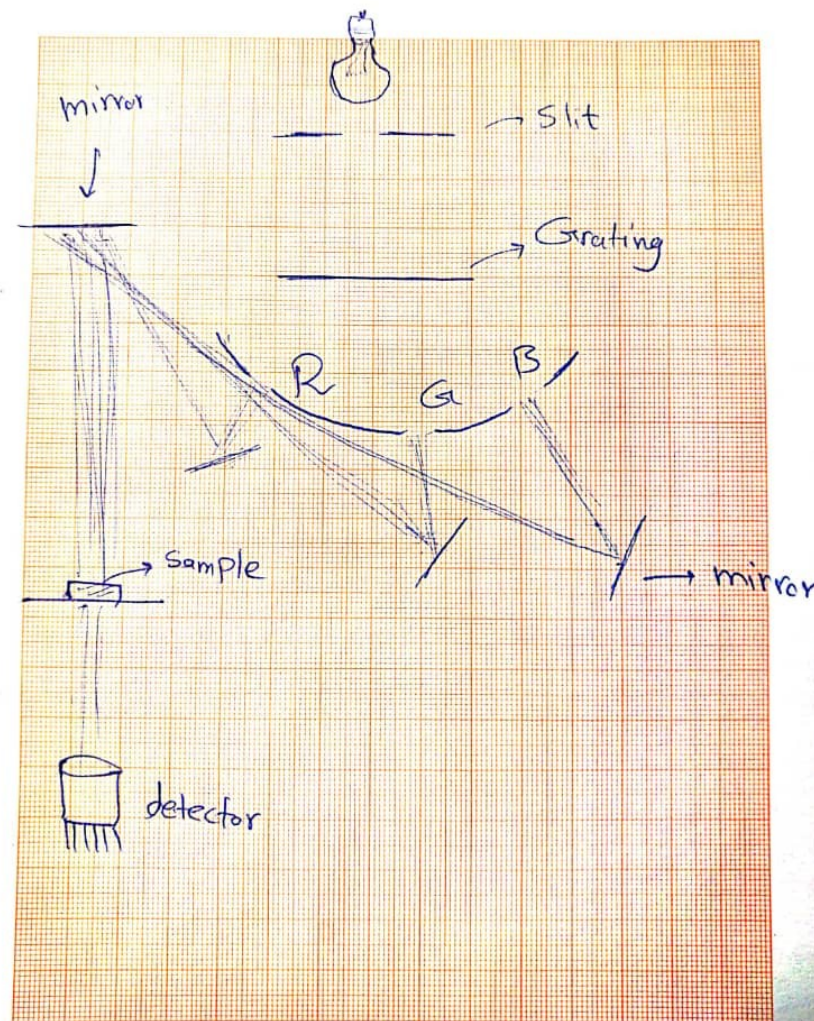 mirror
Slit
Grating
R
G
B
sample
mirror
detector